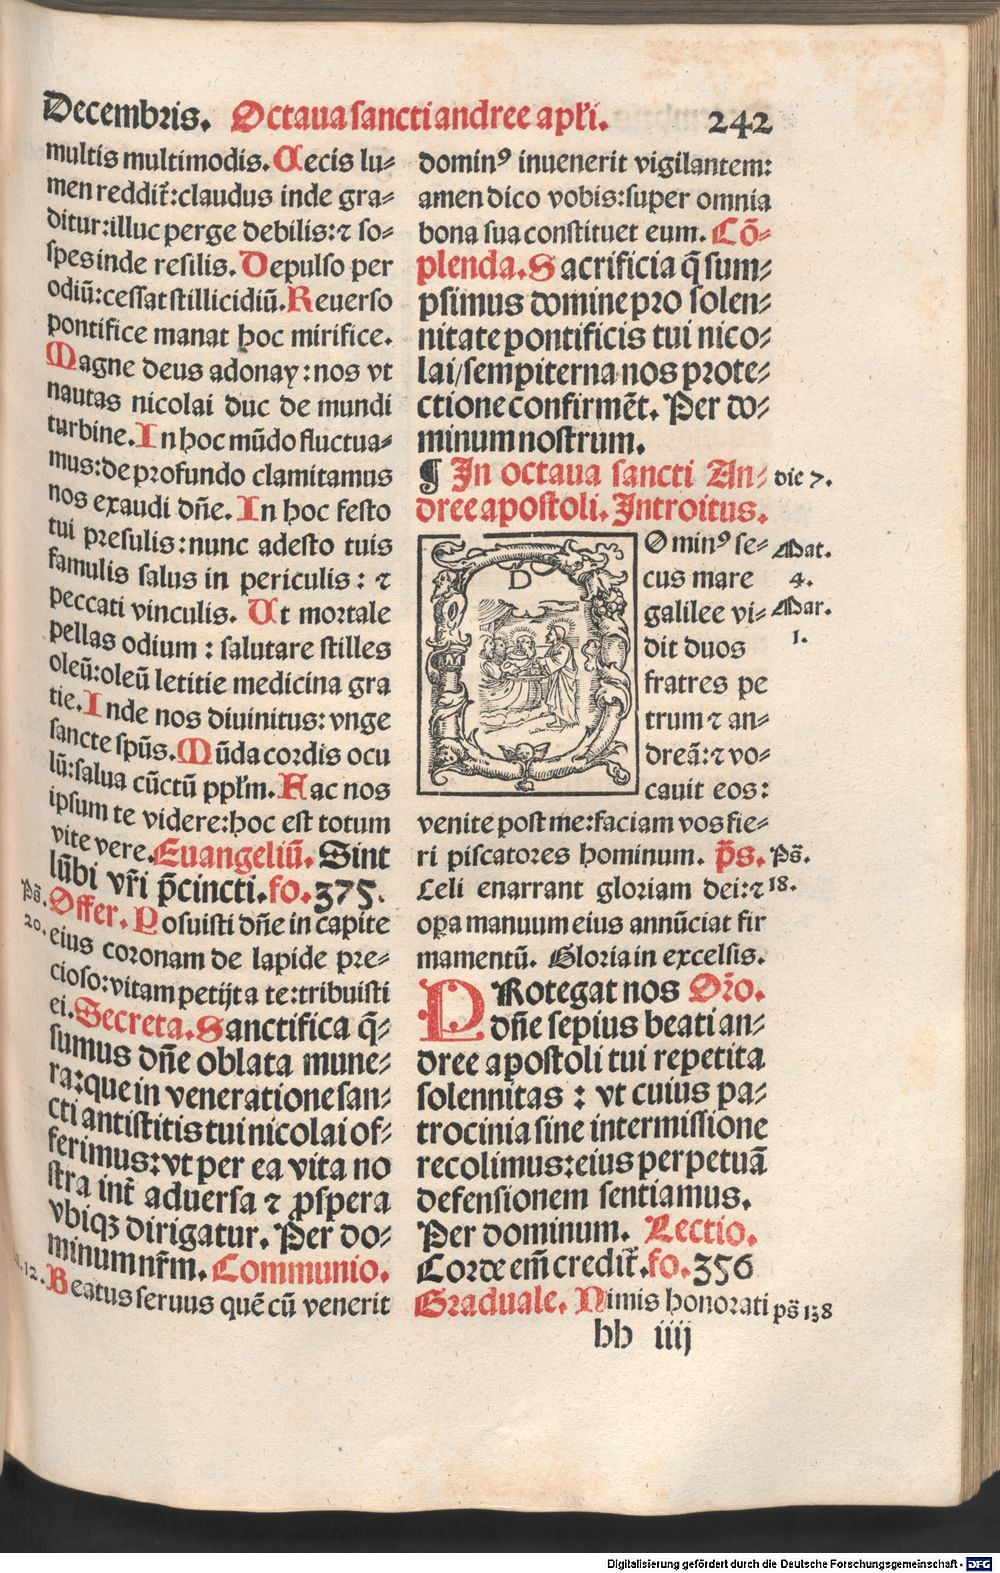 Decembris. Octaua sancti andree apłi. 242
multis multimodis. Cecis lu-
men reddit̄: claudus inde gra-
ditur: illuc perge debilis: ⁊ so-
spes inde resilis. Depulso per
odiū: cessat stillicidiū. Reuerso
pontifice manat hoc mirifice.
Magne deus adonay: nos vt
nautas nicolai duc de mundi
turbine. In hoc mūdo fluctua-
mus: de profundo clamitamus
nos exaudi dn̄e. In hoc festo
tui presulis: nunc adesto tuis
famulis salus in periculis: ⁊
peccati vinculis. Ut mortale
pellas odium: salutare stilles
oleū: oleū letitie medicina gra
tie. Inde nos diuinitus: vnge
sancte spūs. Mūda cordis ocu
lū: salua cūctū ppłm. Fac nos
ipsum te videre: hoc est totum
vite vere. Euangeliū. Sint
lūbi vr̄i p̄cincti. fo. 375.
Ps̄. 20.
Offer. Posuisti dn̄e in capite
eius coronam de lapide pre-
cioso: vitam petijt a te: tribuisti
ei. Secreta. Sanctifica q̄-
sumus dn̄e oblata mune-
ra: que in veneratione san-
cti antistitis tui nicolai of-
ferimus: vt per ea vita no
stra int̄ aduersa ⁊ ꝓspera
vbiqꝫ dirigatur. Per do-
minum nr̄m. Communio.
12.
Beatus seruus quē cū venerit
dominꝰ inuenerit vigilantem:
amen dico vobis: super omnia
bona sua constituet eum. Cō-
plenda. Sacrificia q̄ sum-
psimus domine pro solen-
nitate pontificis tui nico-
lai/ sempiterna nos prote-
ctione confirmēt. Per do-
minum nostrum.
¶ In octaua sancti An-
dree apostoli. Introitus.
die 7.
Dominꝰ se-
cus mare
galilee vi-
dit duos
fratres pe
trum ⁊ an-
dreā: ⁊ vo-
cauit eos:
Mat.
4.
Mar.
1.
venite post me: faciam vos fie-
ri piscatores hominum. p̄s.
Celi enarrant gloriam dei: ⁊
opa manuum eius annūciat fir
mamentū. Gloria in excelsis.
Ps̄.
18.
PRotegat nos Or̄o.
dn̄e sepius beati an-
dree apostoli tui repetita
solennitas: vt cuius pa-
trocinia sine intermissione
recolimus: eius perpetuā
defensionem sentiamus.
Per dominum. Lectio.
Corde em̄ credit̄. fo. 356
Graduale. Nimis honorati
ps̄ 138
bb iiij
Digitalisierung gefördert durch die Deutsche Forschungsgemeinschaft - DFG